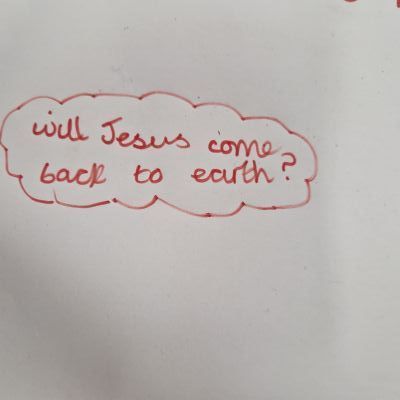 will Jesus come
back to earth?